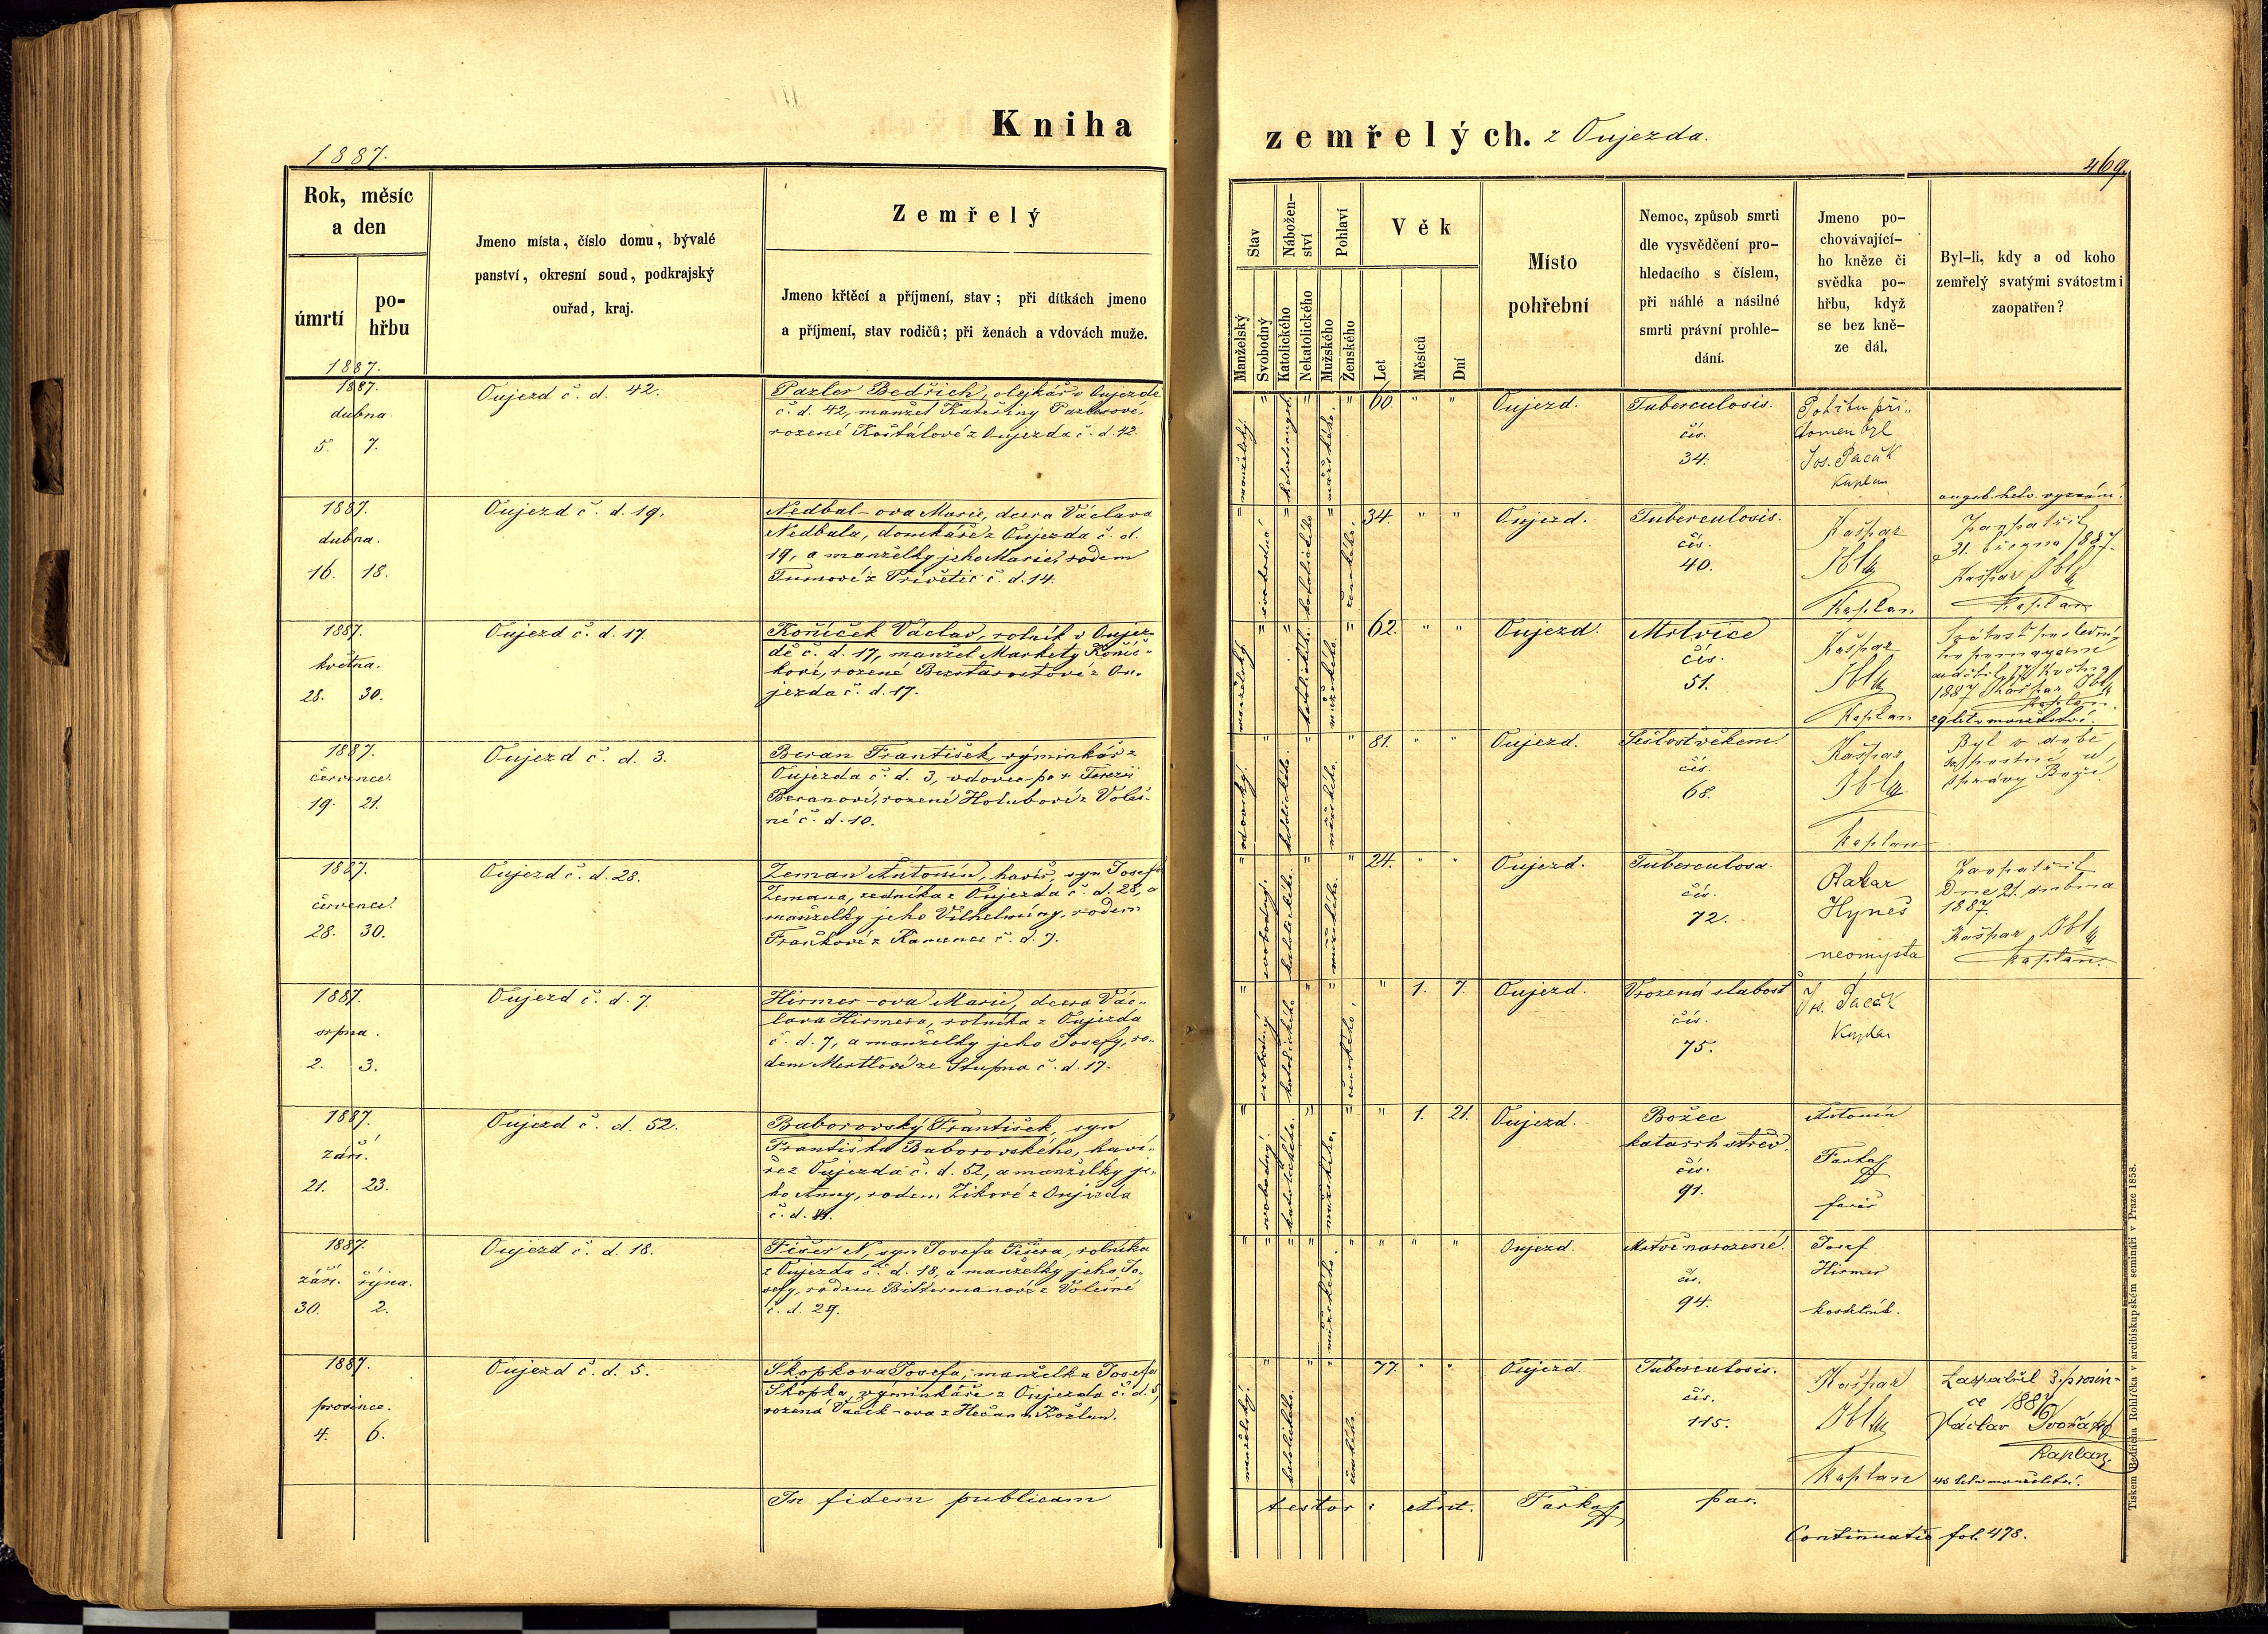 Kniha zemřelých. z Oujezda.
1887.
469.
Rok, měsíc
a den
úmrtí
po-
hřbu
Jmeno místa, číslo domu, bývalé
panství, okresní soud, podkrajský
ouřad, kraj.
Zemřelý
Jmeno křtěcí a příjmení, stav; při dítkách jmeno
a příjmení, stav rodičů; při ženách a vdovách muže.
Stav
Manželský
Svobodný
Nábožen-
ství
Katolického
Nekatolického
Pohlaví
Mužského
Ženského
Věk
Let
Měsíců
Dní
Místo
pohřební
Nemoc, způsob smrti
dle vysvědčení pro-
hledacího s číslem,
při náhlé a násilné
smrti právní prohle-
dání.
Jmeno po-
chovávající-
ho kněze či
svědka po-
hřbu, když
se bez kně-
ze dál.
Byl-li, kdy a od koho
zemřelý svatými svátostmi
zaopatřen?
1887.
1887.
dubna
5. 7.
Oujezd č. d. 42.
Pazler Bedřich, olejkář v Oujezdě
č. d. 42, manžel Kateřiny Pazlerové,
rozené Košťálové z Oujezda č. d. 42.
manželský
mužského.
60. " "
Oujezd.
Tuberculosis.
čís.
34.
Pohřbu pří-
tomen byl
Jos. Pacák
Kaplan
augsb. helv. vyznání.
1887.
dubna.
16. 18.
Oujezd č. d. 19.
Nedbal-ova Marie, dcera Václava
Nedbala, domkáře z Oujezda č. d.
19, a manželky jeho Marie, rodem
Tůmové z Přívětic č. d. 14.
svobodné
katolického
ženského.
34. " "
Oujezd.
Tuberculosis.
čís.
40.
Kašpar
Kaplan
Zaopatřil
31. března 1887
Kašpar
Kaplan
1887.
května.
28. 30.
Oujezd č. d. 17.
Koníček Václav, rolník v Oujez-
dě č. d. 17, manžel Markety Koníč-
kové, rozené Bezstarostové z Ou-
jezda č. d. 17.
manželský
katolického.
mužského.
62. " "
Oujezd.
Mrtvice
čís.
51.
Kašpar
Kaplan
Svátost poslední-
ho pomazání
udělil 17 května
1887 Kašpar
Kaplan.
29 let v manželství.
1887.
července.
19. 21.
Oujezd č. d. 3.
Beran František, výminkář z
Oujezda č. d. 3, vdovec po Terezii
Beranové, rozené Holubové z Voleš-
né č. d. 10.
vdovský.
katolického.
mužského.
81. " "
Oujezd.
Sešlost věkem.
čís.
68.
Kašpar
Kaplan
Byl v době
postní u
zprávy Boží
1887.
července.
28. 30.
Oujezd č. d. 28.
Zeman Antonín, havíř, syn Josefa
Zemana, zedníka z Oujezda č. d. 28, a
manželky jeho Vilhelmíny, rodem
Fraňkové z Kamence č. d. 7.
svobodný.
katolického.
mužského.
24. " "
Oujezd.
Tuberculosa.
čís.
72.
Hyneš
neomysta
Zaopatřil
Dne 21. dubna
1887
Kašpar
Kaplan.
1887.
srpna.
2. 3.
Oujezd č. d. 7.
Hirmer-ova Marie, dcera Vác-
lava Hirmera, rolníka z Oujezda
č. d. 7, a manželky jeho Josefy, ro-
dem Mertlové ze Stupna č. d. 17.
svobodný
katolického
ženského.
" 1. 7.
Oujezd.
Vrozená slabost
čís.
75.
Jos. Pacák
Kaplan
1887.
září.
21. 23.
Oujezd č. d. 52.
Baborovský František, syn
Františka Baborovského, haví-
ře z Oujezda č. d. 52, a manželky je-
ho Anny, rodem Zíkové z Oujezda
č. d.
svobodný.
katolického.
mužského.
" 1. 21.
Oujezd.
Božec
katarrh střev.
čís.
91.
Antonín
Farka
farář
1887.
září. října.
30. 2.
Oujezd č. d. 18.
Fišer N, syn Josefa Fišera, rolníka
z Oujezda č. d. 18, a manželky jeho Jo-
sefy, rodem Bittermanové z Volešné
č. d. 29.
mužského.
" " "
Oujezd.
Mrtvě narozené.
čís.
94.
Josef
Hirmer
kostelník.
1887.
prosince.
4. 6.
Oujezd č. d. 5.
Škopkova Josefa, manželka Josefa
Škopka, výminkáře z Oujezda č. d. 5,
manželský.
katolického.
ženského.
77. " "
Oujezd.
Tuberculosis.
čís.
115.
Kašpar
Kaplan
Zaopatřil 3. prosin-
ce
Václav Dvořák
Kaplan.
In fidem publicam testor: Ant. Farka par.
Continuatio fol. 478.
Tiskem Bedřicha Rohlíčka v arcibiskupském semináři v Praze 1858.